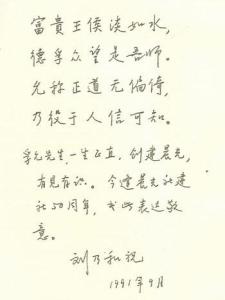 富貴王侯淡如水，
德孚众望是吾师。
允称正道无偏倚，
乃役于人信可知。
孚允先生，一生正直，创建晨光，
有見有识。今逢晨光社建
社50周年，书此表达敬
意。
刘乃和祝
1991年9月